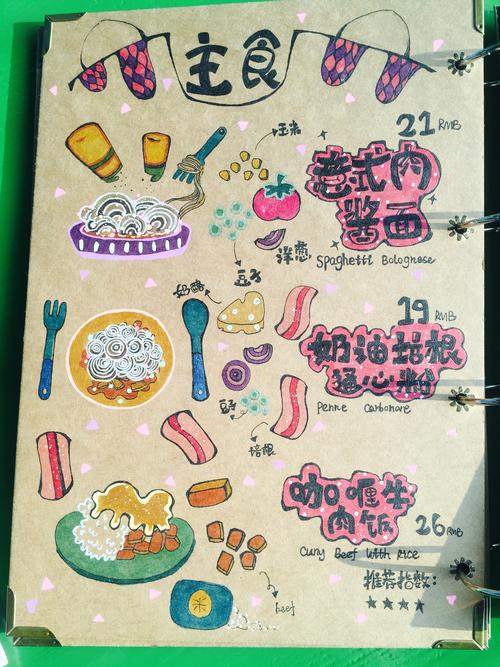 主食
21 RMB
玉米
意式肉
酱面
洋葱
Spaghetti Bolognose
豆子
奶酪
19 RMB
奶油培根
通心粉
豆子
Penne Carbonare
培根
咖喱牛
肉饭
26 RMB
Curry Beef With Rice
推荐指数:
★★★★
米
beef